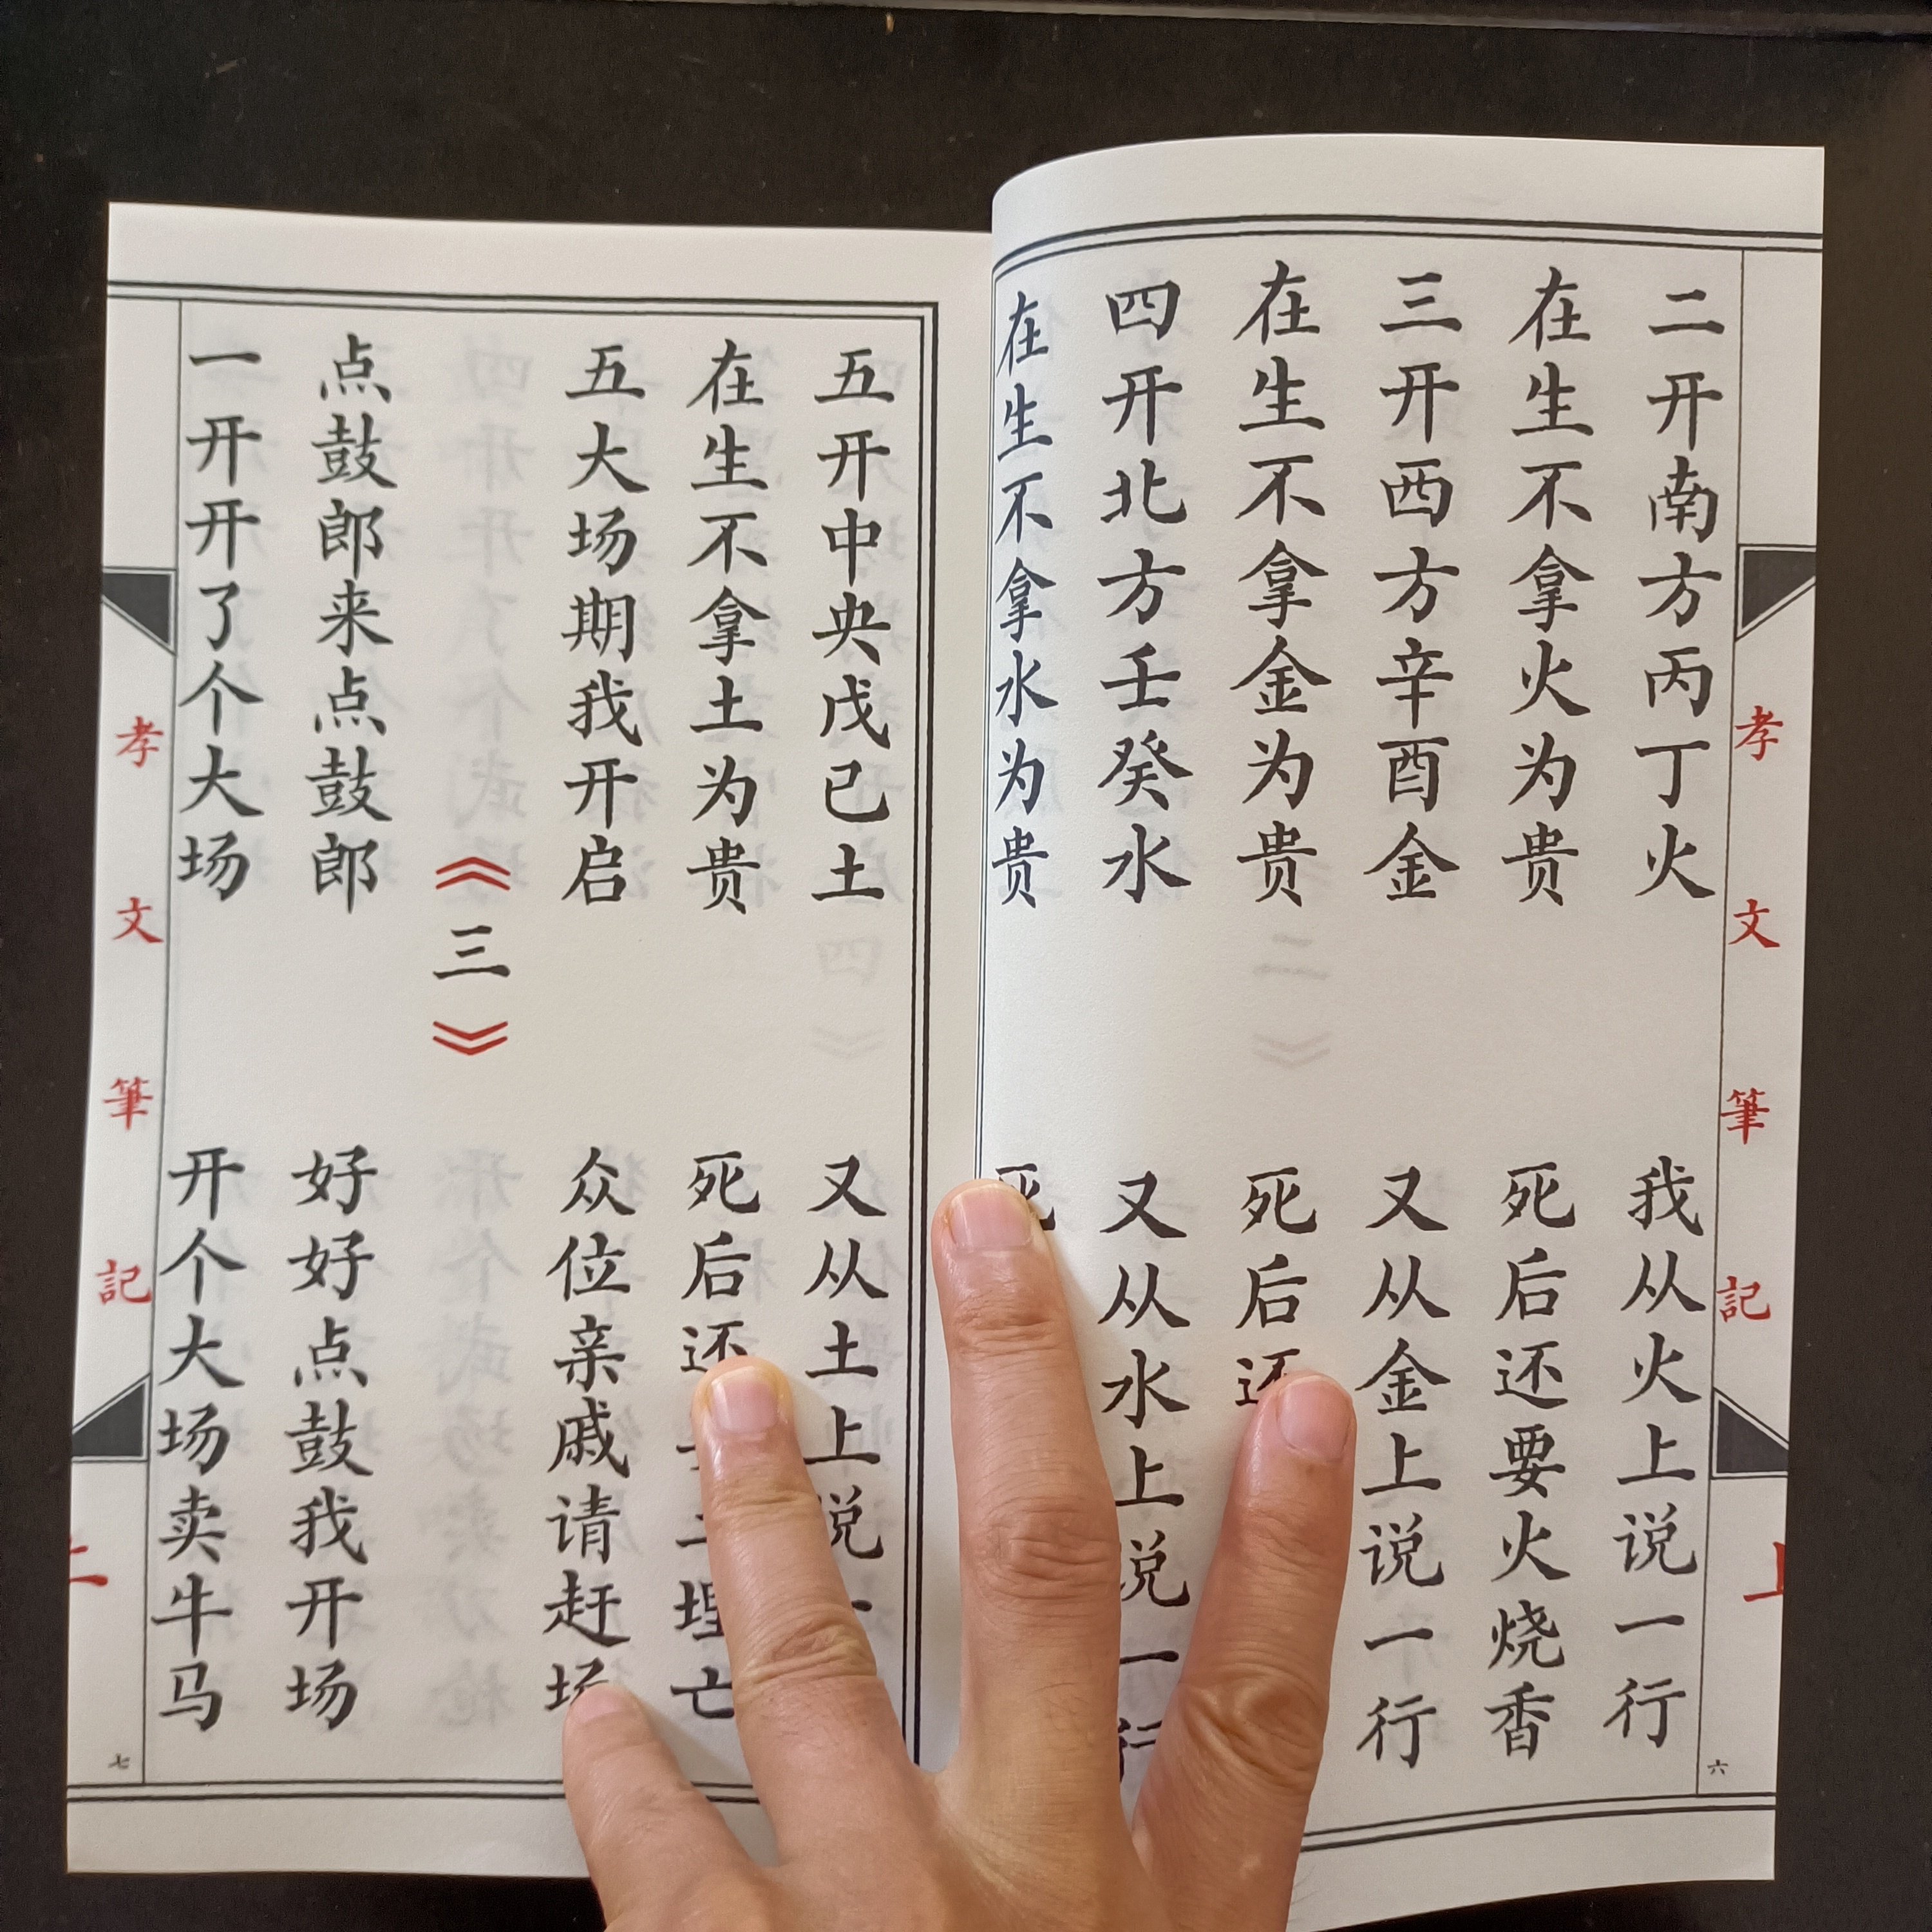 孝文筆記
上
六
二开南方丙丁火 我从火上说一行
在生不拿火为贵 死后还要火烧香
三开西方辛酉金 又从金上说一行
在生不拿金为贵 死后还
四开北方壬癸水 又从水上说一行
在生不拿水为贵 死
五开中央戊已土 又从土上说一
在生不拿土为贵 死后还 土埋亡
五大场期我开启 众位亲戚请赶场
《三》
点鼓郎来点鼓郎 好好点鼓我开场
一开开了个大场 开个大场卖牛马
孝文筆記
上
七